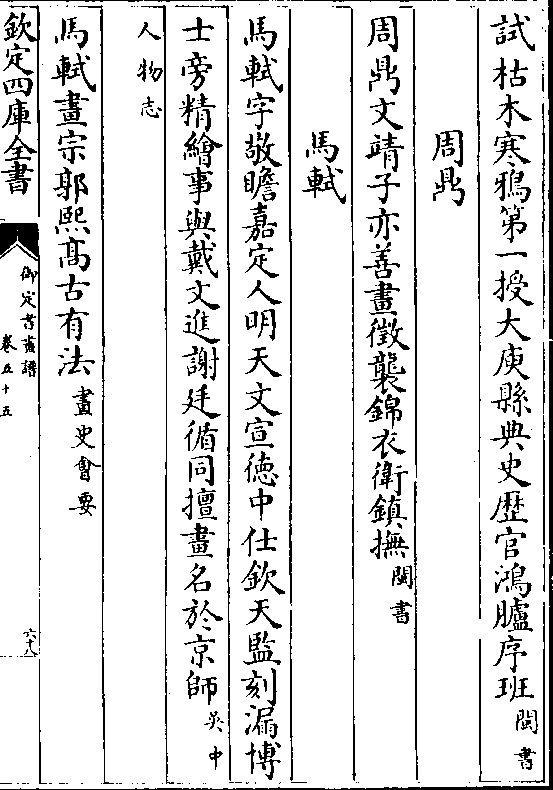 試枯木寒鴉第一授大庾縣典史歷官鴻臚序班閩書
周鼎
周鼎文靖子亦善畫徵襲錦衣衛鎮撫閩書
馬軾
馬軾字敬瞻嘉定人明天文宣德中仕欽天監刻漏博
士旁精繪事與戴文進謝廷循同擅畫名於京師吳中
人物志
馬軾畫宗郭熙髙古有法畫史會要
欽定四庫全書
御定書畫譜
卷五十五
六十八